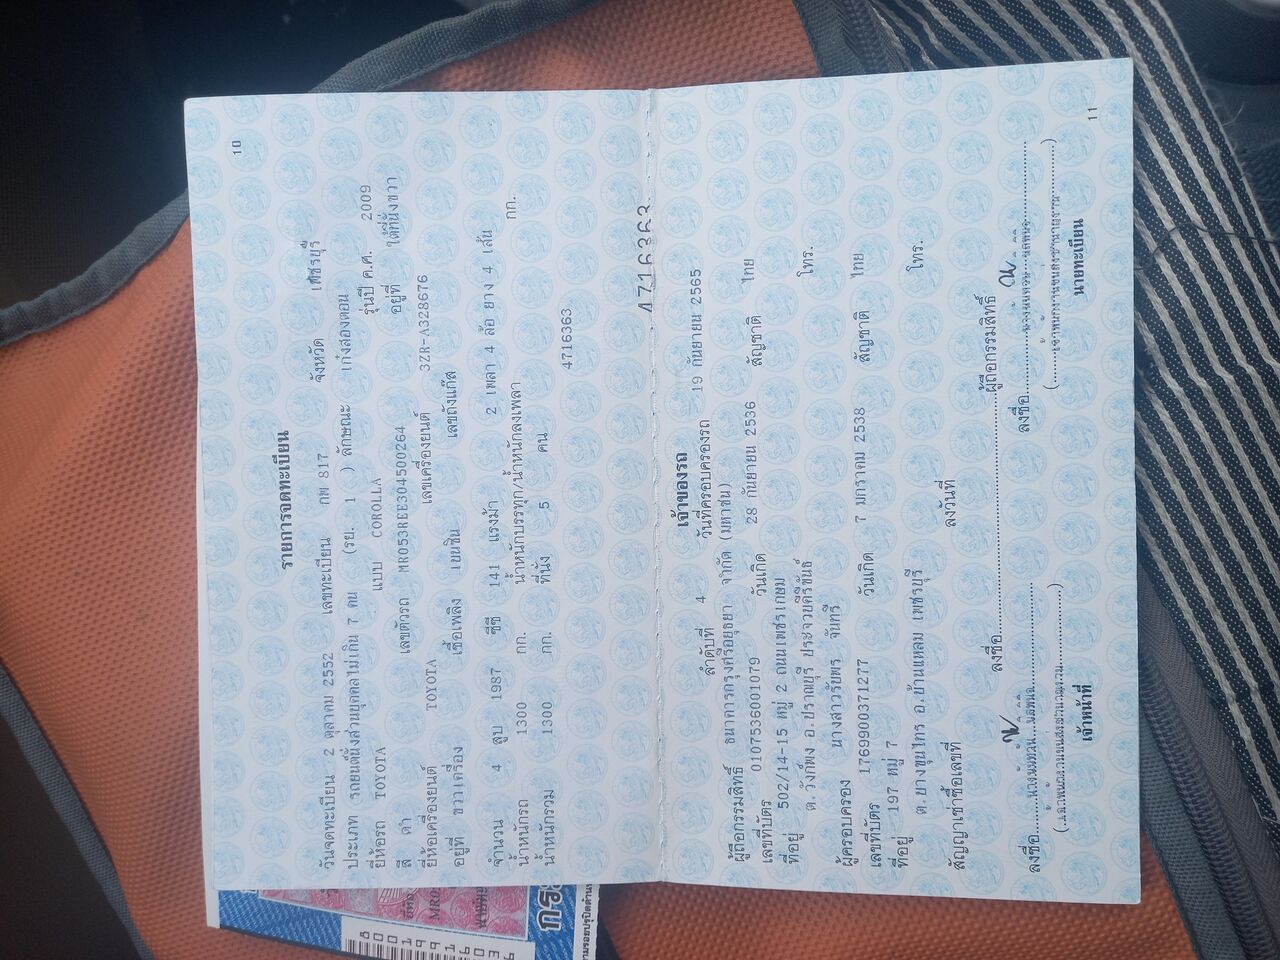 10
รายการจดทะเบียน
วันจดทะเบียน 2 ตุลาคม 2552 เลขทะเบียน กพ 817 จังหวัด เพชรบุรี
ประเภท รถยนต์นั่งส่วนบุคคลไม่เกิน 7 คน (รย. 1 ) ลักษณะ เก๋งสองตอน
ยี่ห้อรถ TOYOTA แบบ COROLLA รุ่นปี ค.ศ. 2009
สี ดำ เลขตัวรถ MR053REE304500264 อยู่ที่ ใต้ที่นั่งขวา
ยี่ห้อเครื่องยนต์ TOYOTA เลขเครื่องยนต์ 3ZR-A328676
อยู่ที่ ขวาเครื่อง เชื้อเพลิง เบนซิน เลขถังแก๊ส
จำนวน 4 สูบ 1987 ซีซี 141 แรงม้า 2 เพลา 4 ล้อ ยาง 4 เส้น
น้ำหนักรถ 1300 กก. น้ำหนักบรรทุก/น้ำหนักลงเพลา กก.
น้ำหนักรวม 1300 กก. ที่นั่ง 5 คน
4716363
4716363
เจ้าของรถ
ลำดับที่ 4 วันที่ครอบครองรถ 19 กันยายน 2565
ผู้ถือกรรมสิทธิ์ ธนาคารกรุงศรีอยุธยา จำกัด (มหาชน)
เลขที่บัตร 0107536001079 วันเกิด 28 กันยายน 2536 สัญชาติ ไทย
ที่อยู่ 502/14-15 หมู่ 2 ถนนเพชรเกษม
ต.วังก์พง อ.ปราณบุรี ประจวบคีรีขันธ์ โทร.
ผู้ครอบครอง นางสาวรับพร จันทรี
เลขที่บัตร 1769900371277 วันเกิด 7 มกราคม 2538 สัญชาติ ไทย
ที่อยู่ 197 หมู่ 7
ต.บางขุนไทร อ.บ้านแหลม เพชรบุรี โทร.
สัญญาเช่าซื้อเลขที่ ลงวันที่
ลงชื่อ ผู้ถือกรรมสิทธิ์
ลงชื่อ ลงชื่อ
เจ้าหน้าที่ นายทะเบียน
11